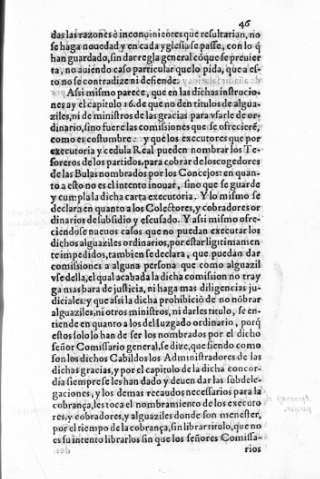 46
das las razones ò inconuiniẽtes que resultarian, no
se haga nouedad y en cada yglesia se passe, con lo q̃
han guardado, sin dar regla general cõ que se preuier
ta, no auiendo caso particular que lo pida, que a es-
to no se contradize ni defiende.
Assi mismo parece, que en las dichas instrucio-
nes ay el capitulo 16. de que no den titulos de algua-
ziles, ni de ministros de las gracias para vsarle de or-
dinario, sino fuere las comissiones que se ofrecierẽ,
como es costumbre: y que los executores que por
executoria y cedula Real pueden nombrar los Te-
soreros de los partidos, para cobrar de los cogedores
de las Bulas nombrados por los Concejos: en quan-
to a esto no es el intento inouar, sino que se guarde
y cumpla la dicha carta executoria. Y lo mismo se
declara en quanto a los Colectores, y cobradores or
dinarios de subsidio y escusado. Y assi mismo ofre-
ciendose nueuos casos que no puedan executar los
dichos alguaziles ordinarios, por estar ligitimamen
te impedidos, tambien se declara, que puedan dar
comissiones a alguna persona que como alguazil
vse della, el qual acabada la dicha comission no tray
ga mas bara de justicia, ni haga mas diligencias ju-
diciales: y que assi la dicha prohibiciõ de no nõbrar
alguaziles, ni otros ministros, ni darles titulo, se en-
tiende en quanto a los del Iuzgado ordinario, porq̃
estos solo lo han de ser los nombrados por el dicho
señor Comissario general, se dize, que siendo como
son los dichos Cabildos los Administradores de las
dichas gracias, y por el capitulo de la dicha concor-
dia siempre se les han dado y deuen dar las subdele-
gaciones, y los demas recaudos necessarios para la
cobrança, les toca el nombramiento de los executo
res, y cobradores, y alguaziles donde son menester,
por el tiempo de la cobrança, sin librar titulo, que no
es su intento librarlos sin que los señores Comissa-
rios